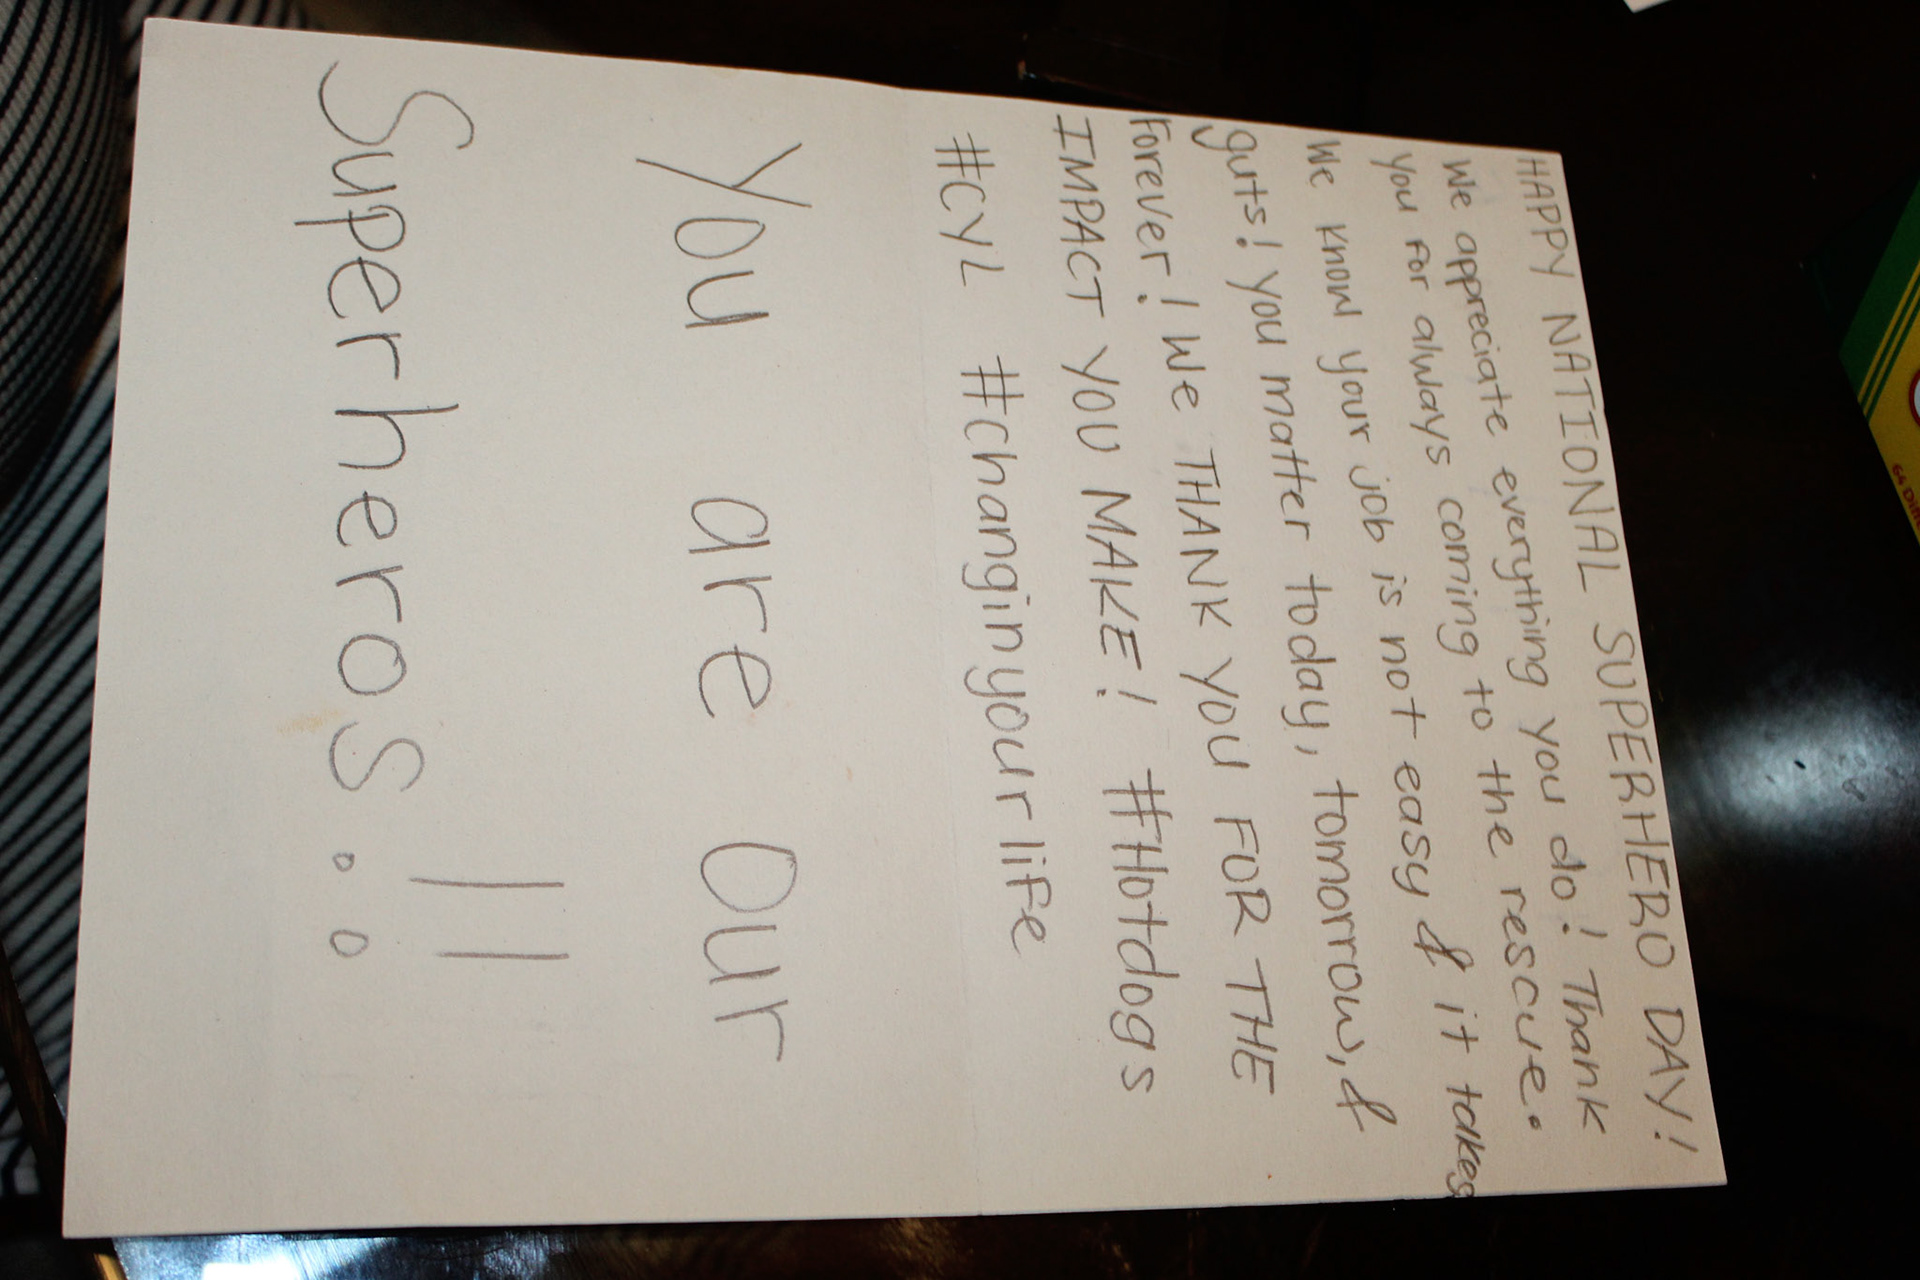 HAPPY NATIONAL SUPERHERO DAY!
We appreciate everything you do! Thank
you for always coming to the rescue.
We know your job is not easy & it takes
guts! you matter today, tomorrow, &
Forever! We THANK YOU FOR THE
IMPACT YOU MAKE! #Hotdogs
#CYL #changinyourlife
You are our
Superheros!!
64 Di